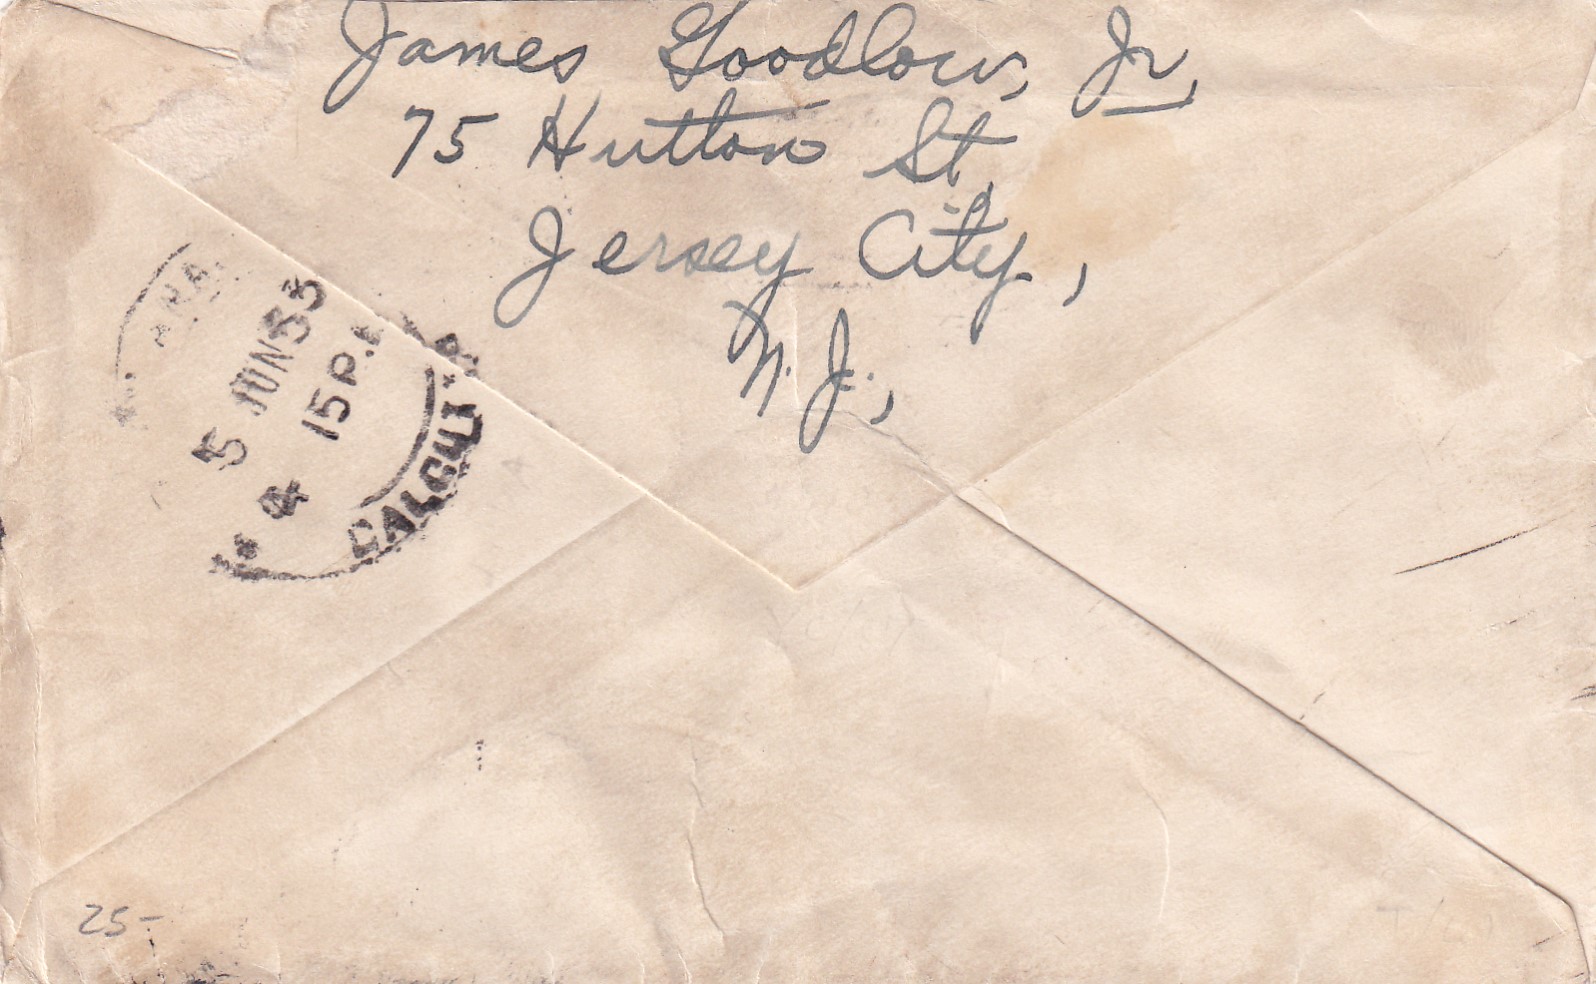 James Goodlow, Jr,
75 Hutton St,
Jersey City,
N. J.,
5 JUN 53
4 15 P.
CALCUT
25-